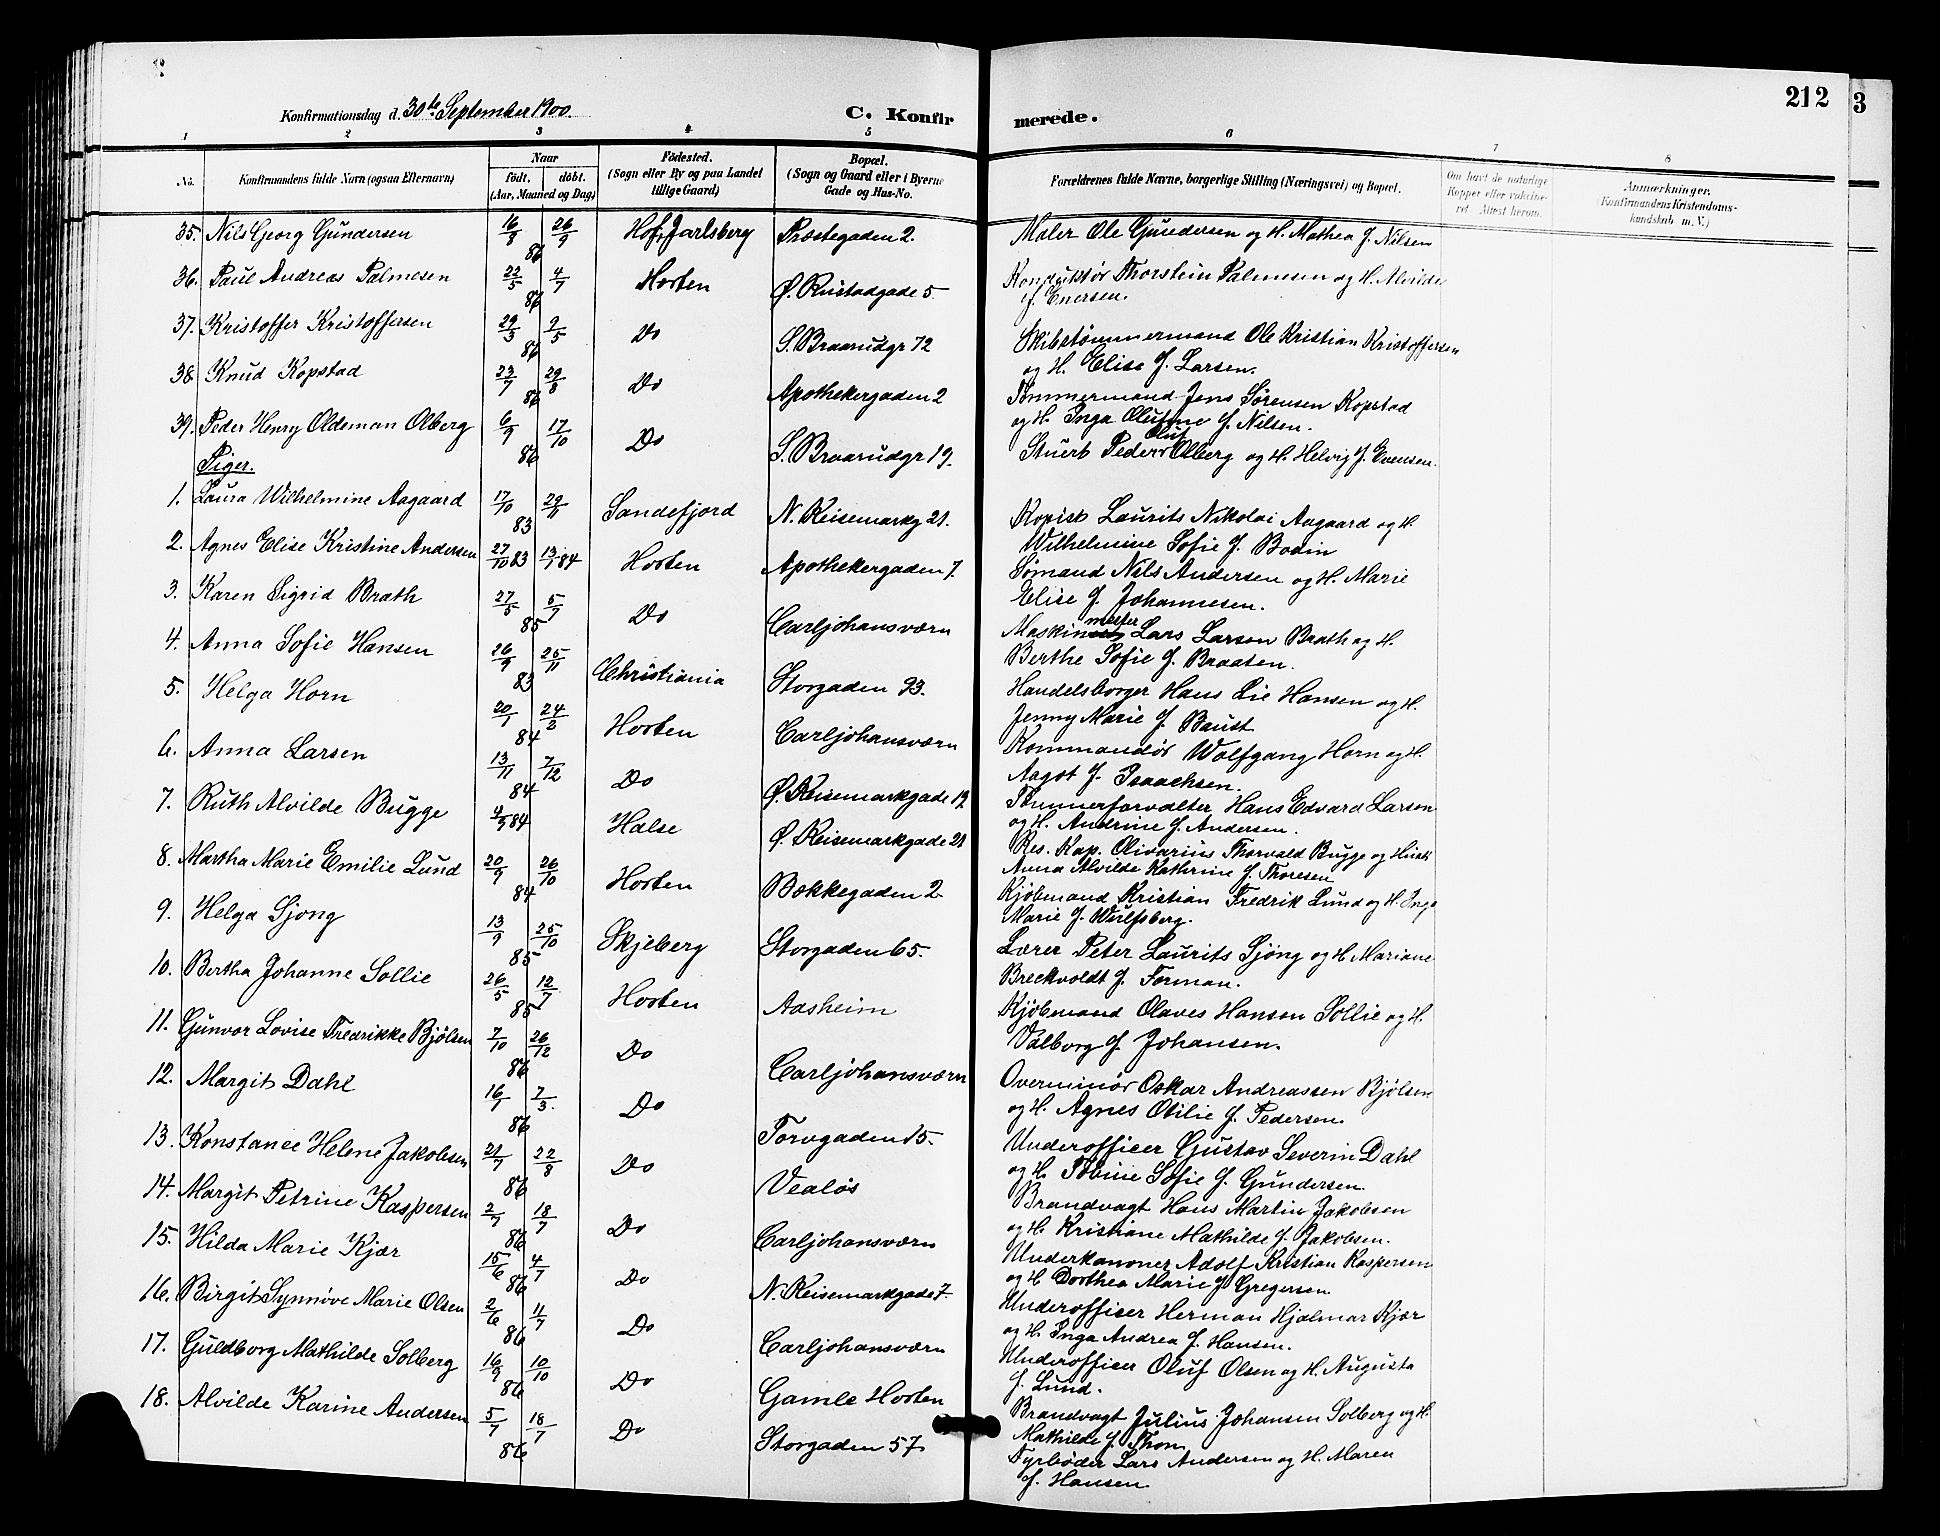 212
3
Konfirmationsdag d. 30te September 1900.
C. Konfirmerede.
1 2 3 4 5 6 7 8
No. Konfirmandens fulde Navn (ogsaa Efternavn) Naar født. døbt. (Aar, Maaned og Dag) Födested. (Sogn eller By og paa Landet tillige Gaard) Bopæl. (Sogn og Gaard eller i Byerne Gade og Hus-No. Forældrenes fulde Navne, borgerlige Stilling (Næringsvei) og Bopæl. Om havt de naturlige Kopper eller vaksineret. Attest herom. Anmærkninger. (Konfirmandens Kristendomskundskab m. V.)
35. Nils Georg Gundersen 16/8 26/9 86 Hof, Jarlsberg Præstegaden 2. Maler Ole Gundersen og H. Mathea f. Nilsen
36. Paul Andreas Palmesen 22/5 4/7 86 Horten Ø. Rustadgade 5. Konduktør Thorstein Palmesen og H. Alvilde
f. Enersen.
37. Kristoffer Kristoffersen 29/3 9/5 86 Do S. Braarudgr 72 Skibstømmermand Ole Kristian Kristoffersen
og H. Elise f. Larsen.
38 Knud Kopstad 23/7 29/8 86 Do Apothekergaden 2 Tømmermand Jens Sørensen Kopstad
og H. Inga Olufine f. Nilsen.
39. Peder Henry Oldeman Olberg 6/9 17/10 86 Do S. Braarudgr 19. Stuert Peder Oluf Olberg og H. Helvig f. Evensen.
Piger.
1. Laura Wilhelmine Aagaard 17/10 29/11 83 Sandefjord N. Keisemarkg 21. Kopist Laurits Nikolai Aagaard og H.
Wilhelmine Sofie f. Bodin
2. Agnes Elise Kristine Andersen 27/10 83 13/1 84 Horten Apothekergaden 7. Sømand Nils Andersen og H. Marie
Elise f. Johannesen.
3. Karen Sigrid Brath 27/5 5/7 85 Do Carljohansværn Maskinmester Lars Larsen Brath og H.
Berthe Sofie f. Braaten.
4. Anna Sofie Hansen 26/9 25/11 83 Christiania Storgaden 93. Handelsborger Hans Lie Hansen og H.
Jenny Marie f. Baust
5. Helga Horn 20/1 24/2 84 Horten Carljohansværn Kommandør Wolfgang Horn og H.
Aagot f. Isaachsen.
6. Anna Larsen 13/11 7/12 84 Do Ø. Keisemarkgade 19 Tømmerforvalter Hans Edvard Larsen
og H. Andrine f. Andersen.
7. Ruth Alvilde Bugge 4/9 84 Halse Ø. Keisemarkgade 21 Res. Kap. Olivarius Thorvald Bugge og Hustr
Anna Alvilde Kathrine f. Thoresen
8. Martha Marie Emilie Lund 20/9 26/10 84 Horten Bakkegaden 2. Kjøbmand Kristian Fredrik Lund og H. Inga
Marie f. Wulfsberg.
9. Helga Sjong 13/9 25/10 85 Skjeberg Storgaden 65. Lærer Peter Laurits Sjöng og H Mariane
Breckvoldt f. Forman.
10. Bertha Johanne Sollie 26/5 12/7 85 Horten Aasheim Kjöbmand Olaves Hansen Sollie og H.
Valborg f. Johansen.
11. Gunvor Lovise Fredrikke Bjölsen 7/10 26/12 86 Do Carljohansværn Overminör Oskar Andreassen Bjölsen
og H. Agnes Otilie f. Pedersen.
12. Margit Dahl 16/1 7/3. 86 Do Torvgaden 15. Underofficer Gustav Severin Dahl
og H. Tobine Sofie f. Gundersen.
13. Konstance Helene Jakobsen 21/7 22/8 86 Do Vealös Brandvagt Hans Martin Jakobsen
og H. Kristiane Mathilde f. Jakobsen.
14. Margit Petrine Kaspersen 2/7 18/7 86 Do Carljohansværn Underkanoner Adolf Kristian Kaspersen
og H Dorthea Marie f Gregersen.
15. Hilda Marie Kjær 15/6 4/7 86 Do N. Keisemarkgade 7. Underofficer Herman Hjalmar Kjær
og H. Inga Andrea f. Hansen.
16. Birgit Synnöve Marie Olsen 2/6 11/7 86 Do Carljohansværn Underofficer Oluf Olsen og H. Augusta
f. Lund.
17. Guldborg Mathilde Solberg 16/9 10/10 86 Do Gamle Horten Brandvagt Julius Johansen Solberg og H.
Mathilde f. Thon
18. Alvilde Karine Andersen 5/7 18/7 86 Do Storgaden 57. Fyrböder Lars Andersen og H. Maren
f. Hansen